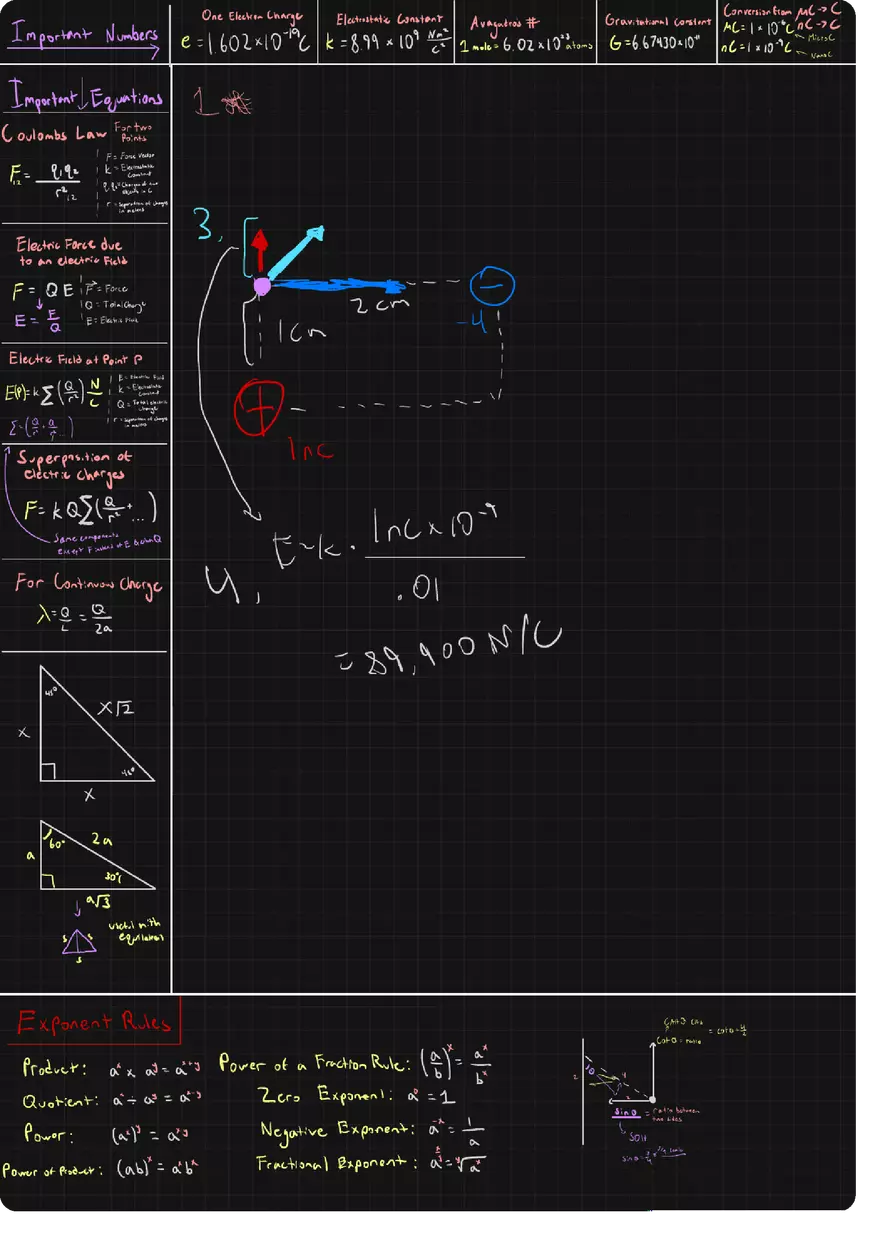 Important Numbers
One Electron Charge
e = 1.602 x 10^-19 C
Electrostatic Constant
k = 8.99 x 10^9 Nm²/C²
Avagatros #
1 mole = 6.02 x 10^23 atoms
Gravitational Constant
G = 6.67430 x 10^-11
Conversion from μC → C
nC → C
μC = 1 x 10^-6 C
MicroC
nC = 1 x 10^-9 C
NanoC
Important Equations
Coulombs Law For two Points
F12 = q1q2 / r²12
F = Force Vector
k = Electrostatic Constant
r = Separation of charges in meters
Electric Force due
to an electric Field
F = QE
F = Force
Q = Total Charge
E = Electric Field
E = E/Q
Electric Field at Point P
E(P) = k Σ(Q/r²) N/C
E = Electric Field
k = Electrostatic Constant
Q = Total electric charge
r = Separation of charges in meters
Σ = (Q/r² + Q/r² ...)
Superposition of
electric charges
F = kQΣ(Q/r² + ...)
Same components
For Continuous Charge
λ = Q/L = Q/2a
45°
x√2
x
45°
x
60°
2a
a
30°
a√3
useful with
equilateral
s s
s
1
3.
2cm
-4
1cm
1nC
4. E = k · 1nC x 10^-9 / .01
= 89,900 N/C
Exponent Rules
Product: a^x x a^y = a^x+y
Quotient: a^x ÷ a^y = a^x-y
Power: (a^x)^y = a^xy
Power of Product: (ab)^x = a^x b^x
Power of a Fraction Rule: (a/b)^x = a^x/b^x
Zero Exponent: a^0 = 1
Negative Exponent: a^-x = 1/a
Fractional Exponent: a^x/y = y√a^x
sinθ = ratio between
two sides
SOH